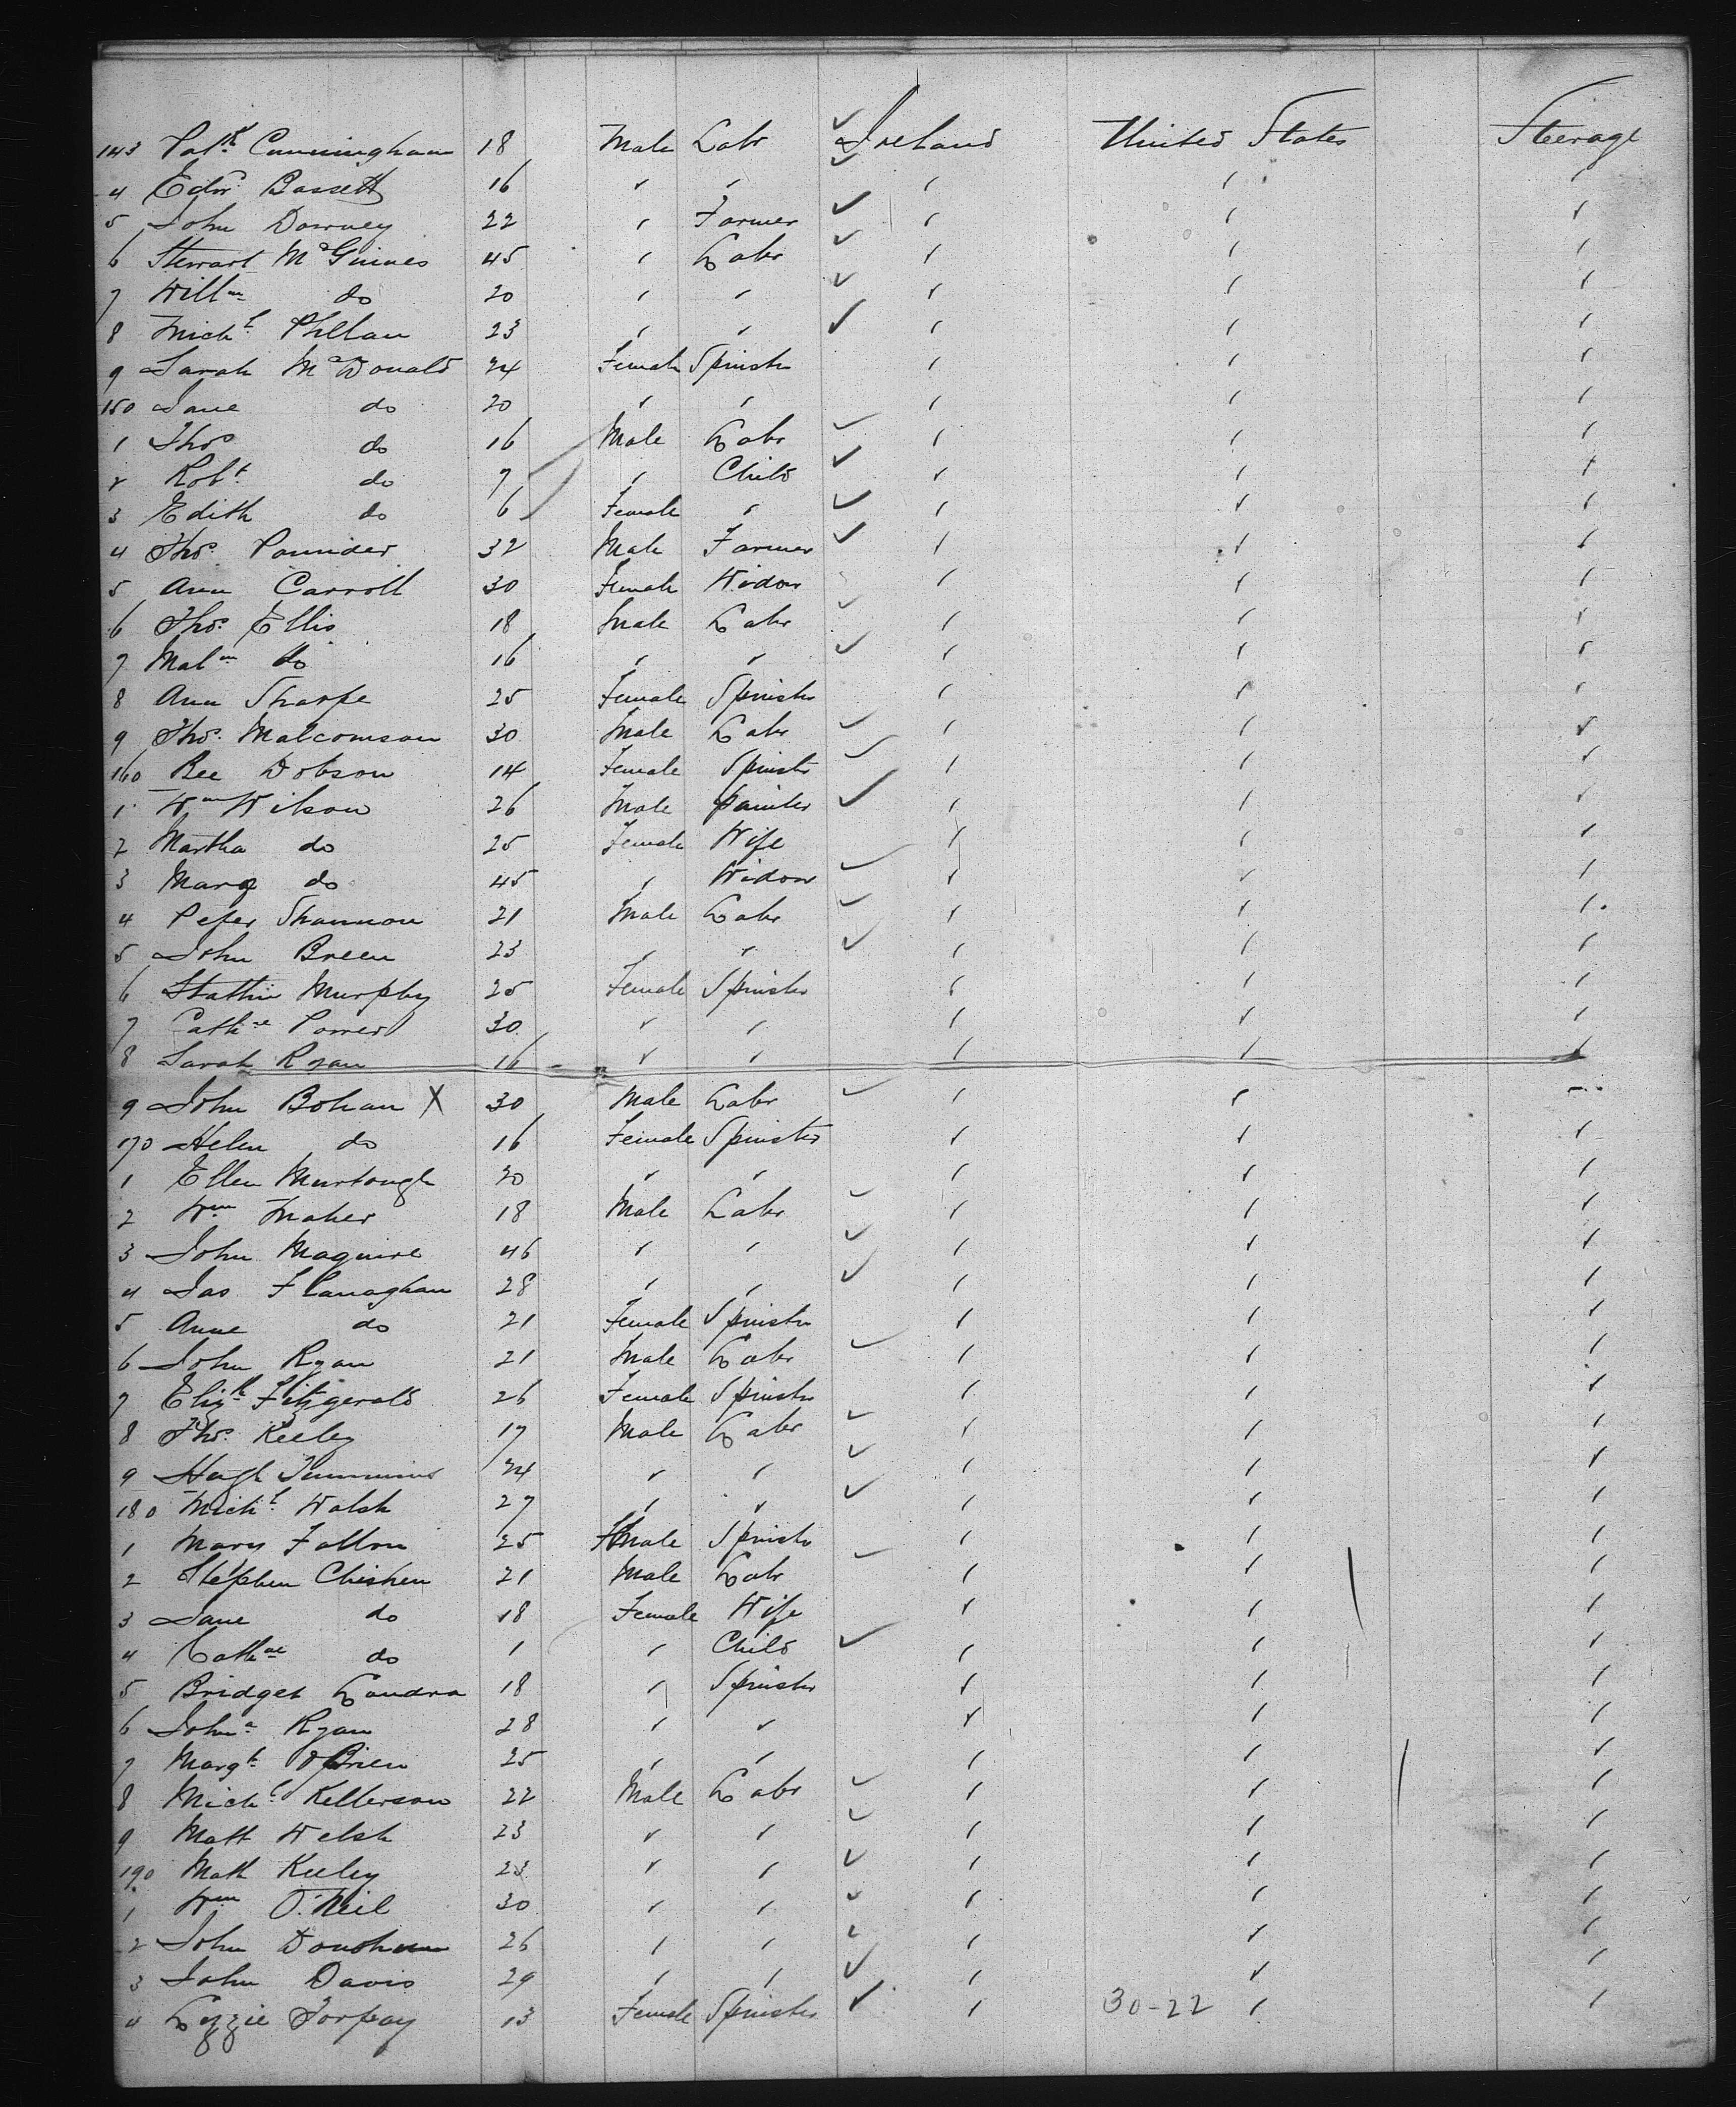 143 Patk Cunningham 18 Male Labr Ireland United States Steerage
4 Edwd Bassett 16 " " " " "
5 John Downey 22 " Farmer " " "
6 Stewart McGuines 45 " Labr " " "
7 Willm do 20 " " " " "
8 Michl Phelan 23 " " " " "
9 Sarah McDonald 24 Female Spinstr " " "
150 Jane do 20 " " " " "
1 Thos do 16 Male Labr " " "
2 Robt do 7 " Child " " "
3 Edith do 6 Female " " " "
4 Thos Pounder 32 Male Farmer " " "
5 Ann Carroll 30 Female Widow " " "
6 Thos Ellis 18 Male Labr " " "
7 Malm do 16 " " " " "
8 Ann Sharpe 25 Female Spinstr " " "
9 Thos Malcomson 30 Male Labr " " "
160 Bee Dobson 14 Female Spinstr " " "
1 Wm Wilson 26 Male Painter " " "
2 Martha do 25 Female Wife " " "
3 Mary do 45 " Widow " " "
4 Peter Shannon 21 Male Labr " " "
5 John Breen 23 " " " " "
6 Murphy 25 Female Spinster " " "
7 Cathne Power 30 " " " " "
8 Sarah Ryan 16 " " " " "
9 John Bohan X 30 Male Labr " " "
170 Helen do 16 Female Spinster " " "
1 Ellen Murtough 20 " " " " "
2 Wm Maher 18 Male Labr " " "
3 John Maguire 46 " " " " "
4 Jas Flanaghan 28 " " " " "
5 Anne do 21 Female Spinstr " " "
6 John Ryan 21 Male Labr " " "
7 Elizth Fitzgerald 26 Female Spinstr " " "
8 Thos Keeley 17 Male Labr " " "
9 Hugh Timmins 24 " " " " "
180 Michl Walsh 27 " " " " "
1 Mary Fallon 25 Female Spinstr " " "
2 Stephen Chisken 21 Male Labr " " "
3 Jane do 18 Female Wife " " "
4 Cathne do 1 " Child " " "
5 Bridget Landra 18 " Spinster " " "
6 Johna Ryan 28 " " " " "
7 Margt O'Brien 25 " " " " "
8 Michl Kellerson 22 Male Labr " " "
9 Matt Welsh 23 " " " " "
190 Math Keeley 23 " " " " "
1 Wm O'Neil 30 " " " " "
2 John Donohue 26 " " " " "
3 John Davis 29 " " " " "
4 Lizzie Torpay 13 Female Spinster " 30-22 " "